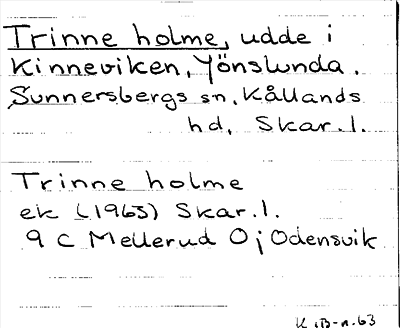 Trinne holme, udde i
Kinneviken, Yönslunda.
Sunnersbergs sn, Kållands
hd, Skar. l.
Trinne holme
ek (1963) Skar. l.
9 C Mellerud O; Odensvik
K.B-n. 63